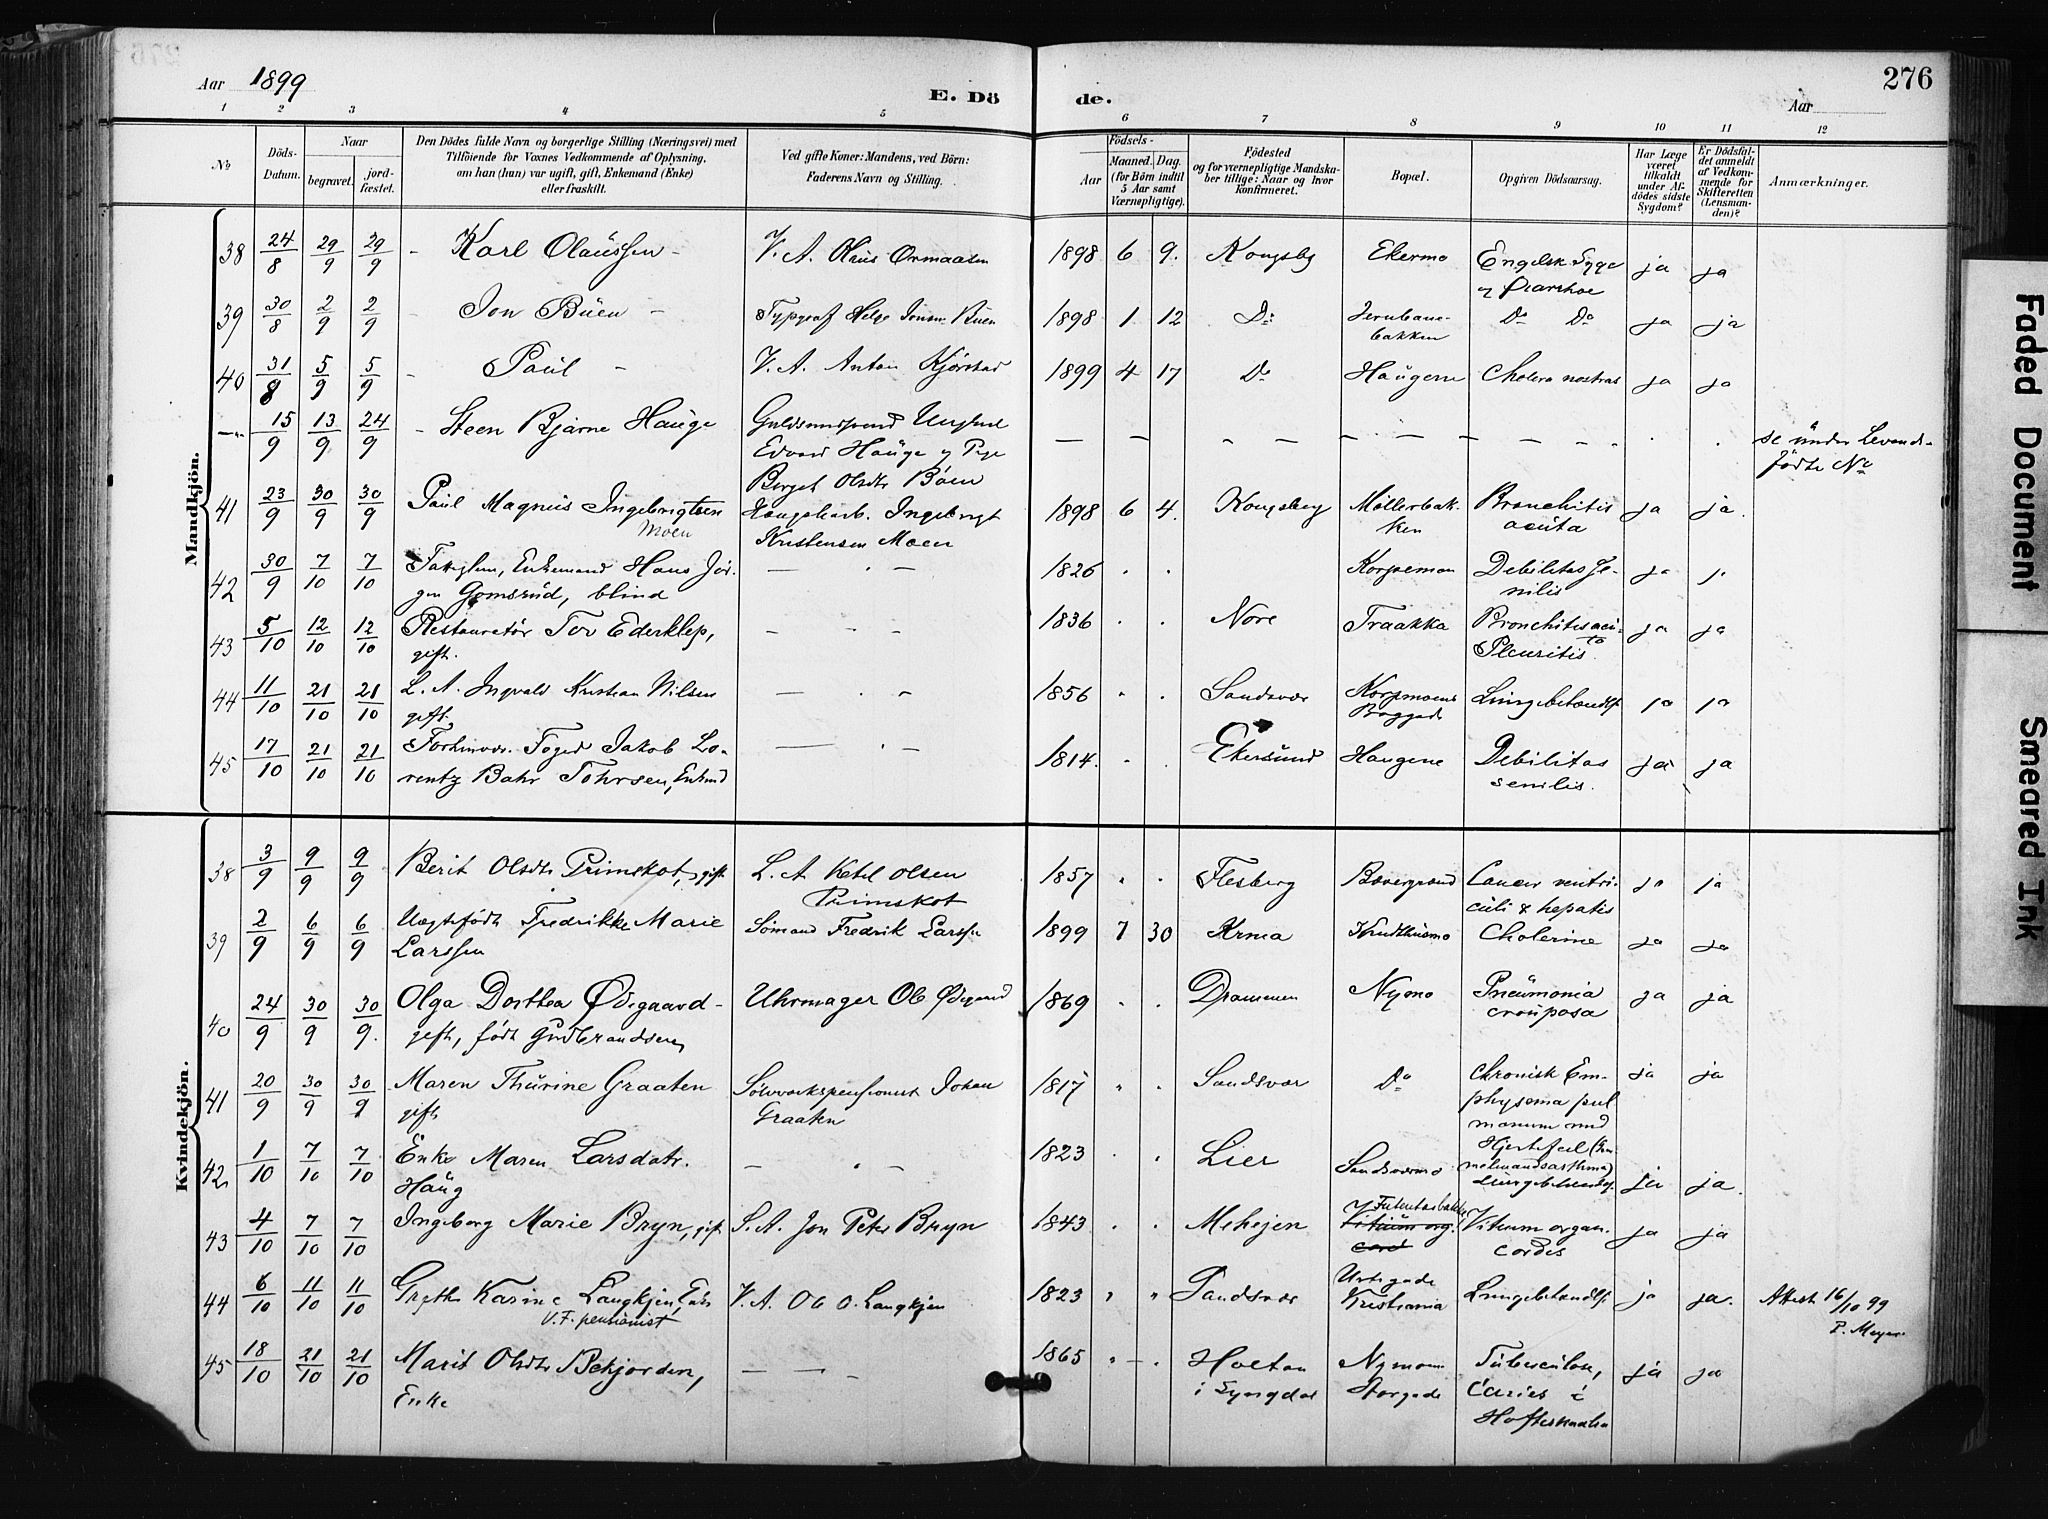 276
Aar 1899
E. Dö de.
Aar
1 2 3 4 5 6 7 8 9 10 11 12
No
Döds-
Datum.
Naar
begravet.
jord-
fæstet.
Den Dödes fulde Navn og borgerlige Stilling (Næringsvei) med
Tilföiende for Voxnes Vedkommende af Oplysning,
om han (hun) var ugift, gift, Enkemand (Enke)
eller fraskilt.
Ved gifte Koner: Mandens, ved Börn:
Faderens Navn og Stilling.
Födsels-
Aar
Maaned. Dag.
(for Börn indtil
5 Aar samt
Værnepligtige).
Födested
og for værnepligtige Mandska-
ber tillige: Naar og hvor
konfirmeret.
Bopæl.
Opgiven Dödsaarsag.
Har Læge
været
tilkaldt
under Af-
dödes sidste
Sygdom?
Er Dödsfal-
det anmeldt
af Vedkom-
mende for
Skifteretten
(Lensman-
den)?
Anmærkninger.
Mandkjön.
38 24/8 29/9 29/9 - Karl Olaussen - V. A. Olaus Ormaasen 1898 6 9. Kongsbg Ekermo Engelsk Syge ja ja
39 30/8 2/9 2/9 - Jon Buen - Typograf Helge Jonsen Buen 1898 1 12 Do Jernbane- Do Do ja ja
bakken
40 31/8 5/9 5/9 - Paul - V. A. Anton Kjörstad 1899 4 17 Do Haugene Cholera nostras ja ja
15/9 13/9 24/9 - Steen Bjarne Hauge
Edvard Hauge og Pige
Berget Olsdtr Böen
se under Levend-
födte No
41 23/9 30/9 30/9 Paul Magnus Ingebrigtsen Ingebrigt 1898 6 4. Kongsberg Möllerbak- Bronchitis ja ja.
Moen Kristensen Moen ken acuta
42 30/9 7/10 7/10 Enkemand Hans Jör- 1826 Korpemoen Debilitas se- ja ja
gen Gomsrud, blind nilis
43 5/10 12/10 12/10 Restauratör Tor Ederklep, 1836 Nore Traakka Bronchitis acu- ja ja
gift. Pleuritis. ta
44 11/10 21/10 21/10 L. A. Ingvald Kristian Nilsen 1856 Sandsvær Lungebetændelse ja ja
gift.
45 17/10 21/10 21/10 Forhenvær. Foged Jakob Lo- 1814. Ekersund Haugene Debilitas ja ja
rentz Bahr Tohrsen, Enkmd senilis.
Kvindekjön.
38 3/9 9/9 9/9 Berit Olsdtr Primskot, gift L. A. Ketil Olsen 1857 Flesberg Bævergrend Cancer ventri- ja ja
Primskot culi & hepatis
39 2/9 6/9 6/9 Uægtefödt Fredrikke Marie Sömand Fredrik Larssen 1899 7 30 Cholerine ja ja
Larssen
40 24/9 30/9 30/9. Olga Dorthea Ödegaard- Uhrmager Ole Ödegaard 1869 Drammen Nymo Pneumonia ja ja
gift, födt Gudbrandsen crouposa
41 20/9 30/9 30/9 Maren Thurine Graaten Sölvværkspensionist Johan 1817 Sandsvær Do chronisk Em- ja ja
gift Graaten physema pul
monum med
42 1/10 7/10 7/10 Enke Maren Larsdatr. 1823 Lier Sandsværmo Hjertefeil ja ja.
Haug
43 4/10 7/10 7/10 Ingeborg Marie Bryn, gift S. A. Jon Peter Bryn 1843 Mehejen Vitium org. Vitium organ. ja ja
cord cordis
44 6/10 11/10 11/10 Grethe Karine Langkjen, V. A. Ole O. Langkjen 1823 Sandsvær Lungebetændelse ja ja. Attest 16/10 99
V. F. pensionist Kristiania P. Meyer
45 18/10 21/10 21/10 Marit Olsdtr Bekjorden, 1865 Holtan Nymoen Tuberculose, ja ja
Enke i Lyngdal Storgade Caries i
Hofteskaalen
Faded Document
Smeared Ink